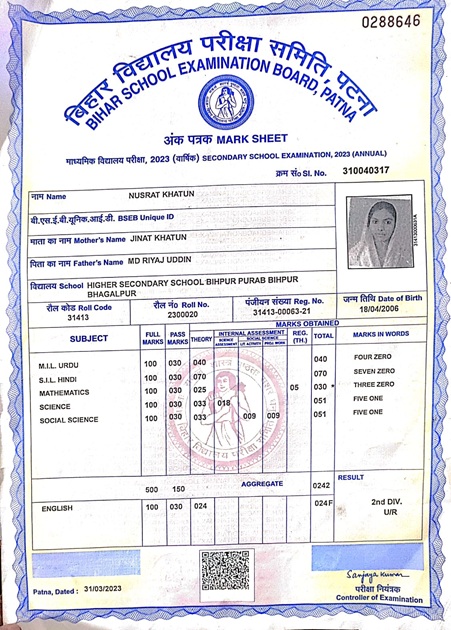 0288646
बिहार विद्यालय परीक्षा समिति, पटना
BIHAR SCHOOL EXAMINATION BOARD, PATNA
अंक पत्रक MARK SHEET
माध्यमिक विद्यालय परीक्षा, 2023 (वार्षिक) SECONDARY SCHOOL EXAMINATION, 2023 (ANNUAL)
क्रम सं० Sl. No. 310040317
नाम Name NUSRAT KHATUN
बी.एस.ई.बी.यूनिक.आई.डी. BSEB Unique ID
माता का नाम Mother's Name JINAT KHATUN
पिता का नाम Father's Name MD RIYAJ UDDIN
विद्यालय School HIGHER SECONDARY SCHOOL BIHPUR PURAB BIHPUR
BHAGALPUR
रौल कोड Roll Code रौल नं० Roll No. पंजीयन संख्या Reg. No. जन्म तिथि Date of Birth
31413 2300020 31413-00063-21 18/04/2006
MARKS OBTAINED
SUBJECT FULL MARKS PASS MARKS THEORY INTERNAL ASSESSMENT REG. (TH.) TOTAL MARKS IN WORDS
SCIENCE ASSESSMENT SOCIAL SCIENCE LIT ACTIVITY PROJ. WORK
M.I.L. URDU 100 030 040 040 FOUR ZERO
S.I.L. HINDI 100 030 070 070 SEVEN ZERO
MATHEMATICS 100 030 025 05 030 * THREE ZERO
SCIENCE 100 030 033 018 051 FIVE ONE
SOCIAL SCIENCE 100 030 033 009 009 051 FIVE ONE
500 150 AGGREGATE 0242 RESULT
ENGLISH 100 030 024 024F 2nd DIV.
U/R
Sanjaya Kumar
परीक्षा नियंत्रक
Patna, Dated : 31/03/2023 Controller of Examination